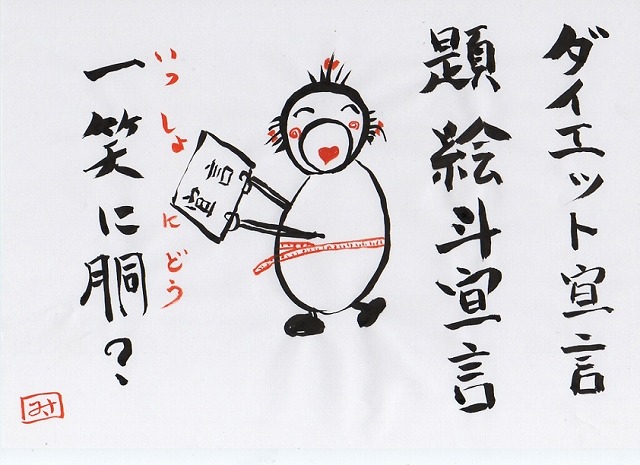 ダイエット宣言
題 絵斗宣言
宣言
いっしょ に どう
一笑に胴?
みサ